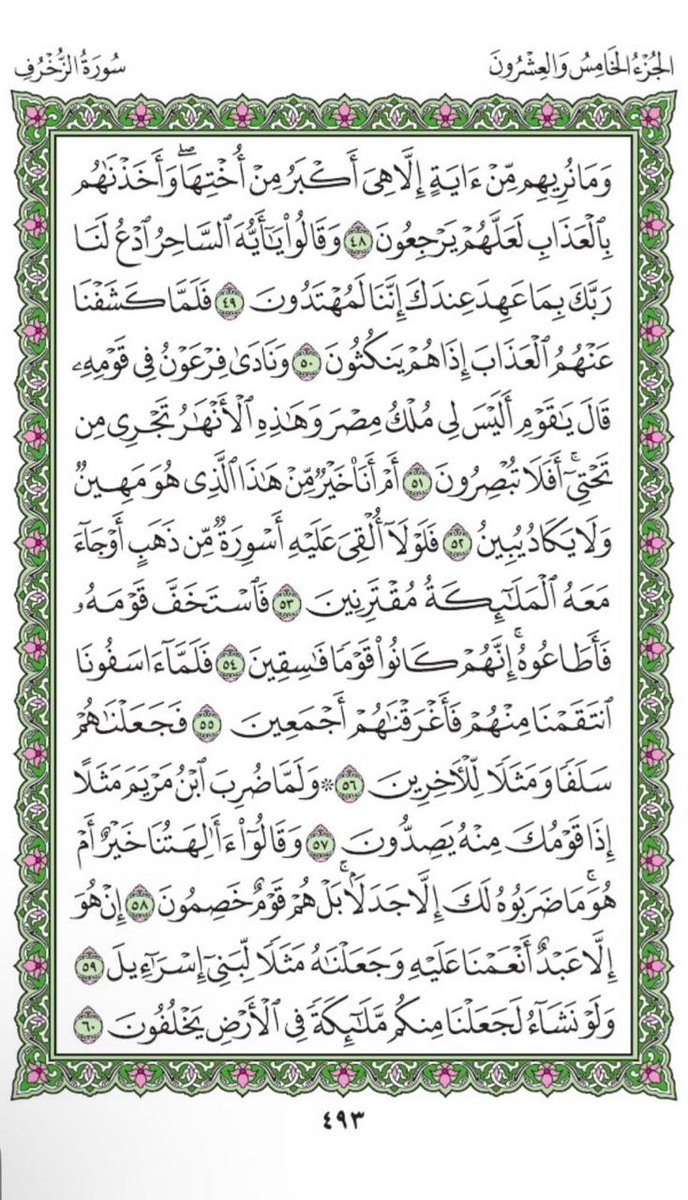 الجُزْءُ الخَامِسُ وَالعِشْرُونَ
سُورَةُ الزُّخْرُفِ
وَمَا نُرِيهِم مِّنْ ءَايَةٍ إِلَّا هِىَ أَكْبَرُ مِنْ أُخْتِهَاۖ وَأَخَذْنَٰهُم
بِٱلْعَذَابِ لَعَلَّهُمْ يَرْجِعُونَ ٤٨ وَقَالُوا۟ يَٰٓأَيُّهَ ٱلسَّاحِرُ ٱدْعُ لَنَا
رَبَّكَ بِمَا عَهِدَ عِندَكَ إِنَّنَا لَمُهْتَدُونَ ٤٩ فَلَمَّا كَشَفْنَا
عَنْهُمُ ٱلْعَذَابَ إِذَا هُمْ يَنكُثُونَ ٥٠ وَنَادَىٰ فِرْعَوْنُ فِى قَوْمِهِۦ
قَالَ يَٰقَوْمِ أَلَيْسَ لِى مُلْكُ مِصْرَ وَهَٰذِهِ ٱلْأَنْهَٰرُ تَجْرِى مِن
تَحْتِىٓۚ أَفَلَا تُبْصِرُونَ ٥١ أَمْ أَنَا۠ خَيْرٌ مِّنْ هَٰذَا ٱلَّذِى هُوَ مَهِينٌ
وَلَا يَكَادُ يُبِينُ ٥٢ فَلَوْلَآ أُلْقِىَ عَلَيْهِ أَسْوِرَةٌ مِّن ذَهَبٍ أَوْ جَآءَ
مَعَهُ ٱلْمَلَٰٓئِكَةُ مُقْتَرِنِينَ ٥٣ فَٱسْتَخَفَّ قَوْمَهُۥ
فَأَطَاعُوهُۚ إِنَّهُمْ كَانُوا۟ قَوْمًا فَٰسِقِينَ ٥٤ فَلَمَّآ ءَاسَفُونَا
ٱنتَقَمْنَا مِنْهُمْ فَأَغْرَقْنَٰهُمْ أَجْمَعِينَ ٥٥ فَجَعَلْنَٰهُمْ
سَلَفًا وَمَثَلًا لِّلْـَٔاخِرِينَ ٥٦ ۞ وَلَمَّا ضُرِبَ ٱبْنُ مَرْيَمَ مَثَلًا
إِذَا قَوْمُكَ مِنْهُ يَصِدُّونَ ٥٧ وَقَالُوٓا۟ ءَأَٰلِهَتُنَا خَيْرٌ أَمْ
هُوَۚ مَا ضَرَبُوهُ لَكَ إِلَّا جَدَلًۢاۚ بَلْ هُمْ قَوْمٌ خَصِمُونَ ٥٨ إِنْ هُوَ
إِلَّا عَبْدٌ أَنْعَمْنَا عَلَيْهِ وَجَعَلْنَٰهُ مَثَلًا لِّبَنِىٓ إِسْرَٰٓءِيلَ ٥٩
وَلَوْ نَشَآءُ لَجَعَلْنَا مِنكُم مَّلَٰٓئِكَةً فِى ٱلْأَرْضِ يَخْلُفُونَ ٦٠
٤٩٣